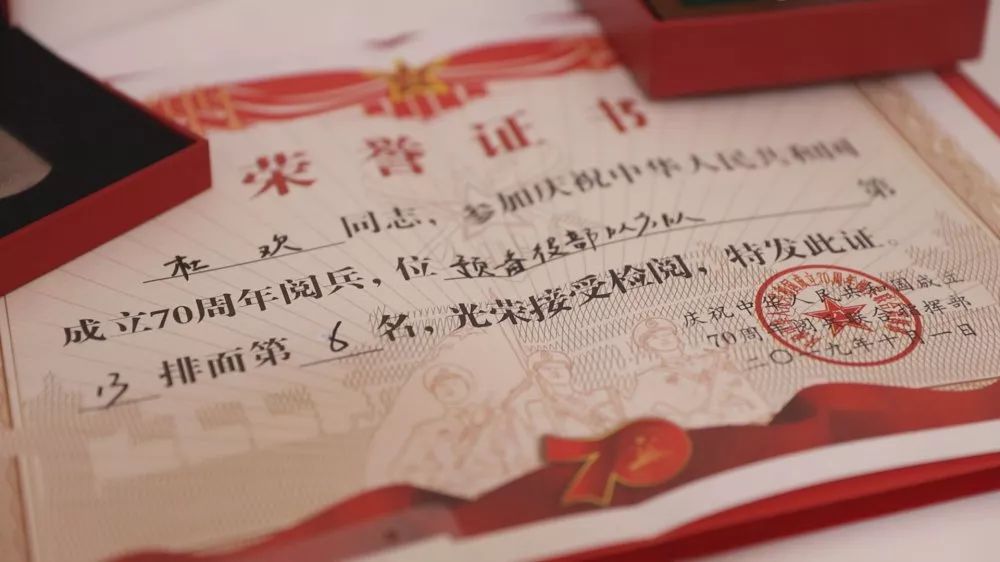 荣誉证书
杜欢同志，参加庆祝中华人民共和国
成立70周年阅兵，位预备役部队方队第
13排面第6名，光荣接受检阅，特发此证。
庆祝中华人民共和国成立
70周年阅兵联合指挥部
二〇一九年十月一日